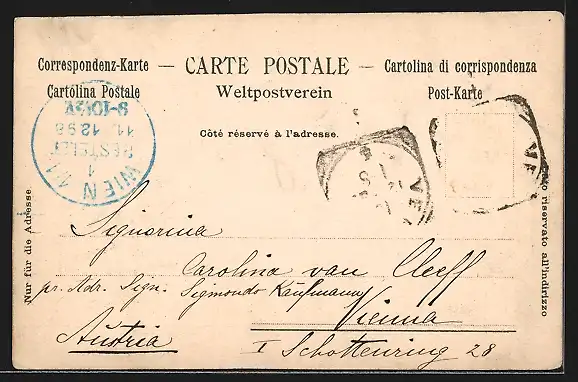 Correspondenz-Karte — CARTE POSTALE — Cartolina di corrispondenza
Cartolina Postale Weltpostverein Post-Karte
Côté réservé à l'adresse.
WIEN 1/1
1
BESTELLT
11. 12 98
VE
VE
Nur für die Adresse
riservato all'indirizzo
Signorina
Carolina van Cleeff
pr. Adr. Sign. Sigmondo Kaufmann
Vienna
Austria
I Schottenring 28